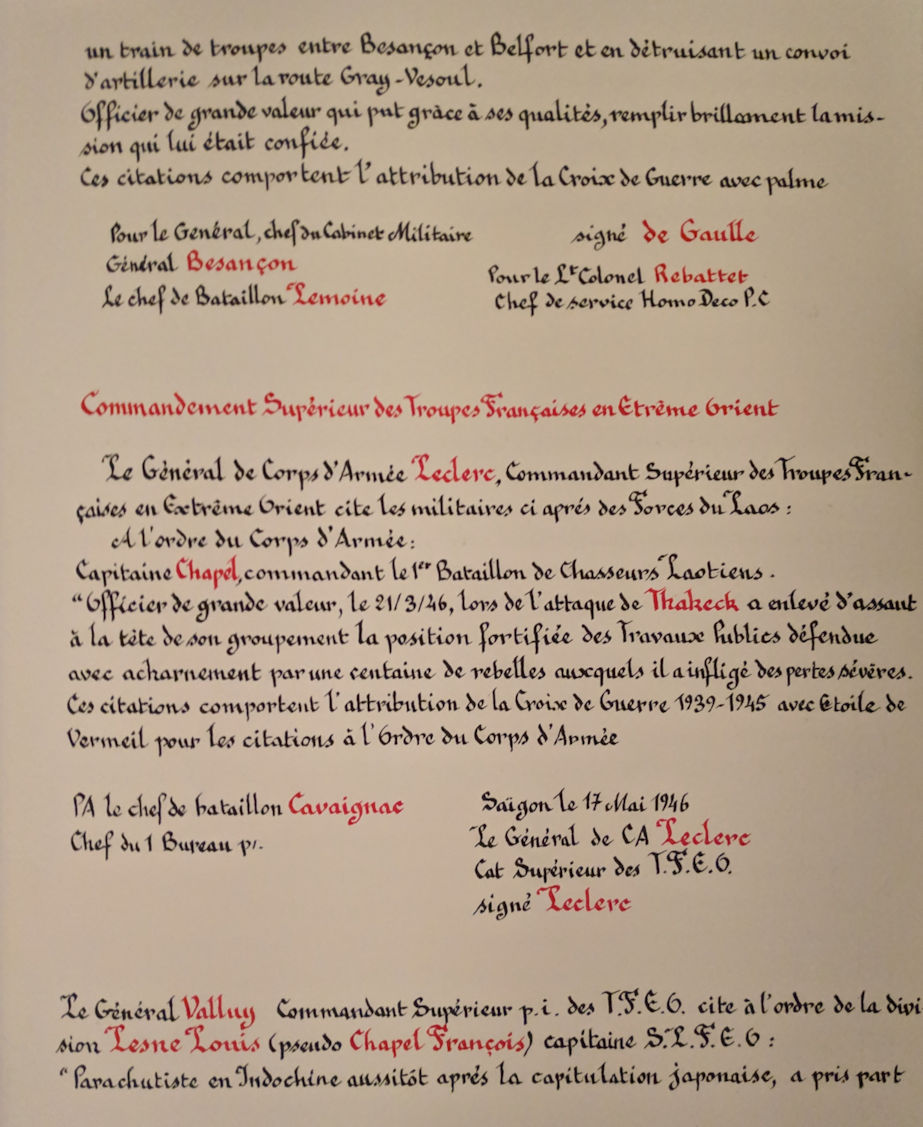 un train de troupes entre Besançon et Belfort et en détruisant un convoi
d'artillerie sur la route Gray-Vesoul.
Officier de grande valeur qui put grâce à ses qualités, remplir brillament la mis-
sion qui lui était confiée.
Ces citations comportent l'attribution de la Croix de Guerre avec palme
Pour le Général, chef du Cabinet Militaire
Général Besançon
Le chef de Bataillon Lemoine
signé de Gaulle
Pour le Lt Colonel Rebattet
Chef de service Homo Deco P.C
Commandement Supérieur des Troupes Françaises en Etrême Orient
Le Général de Corps d'Armée Leclerc, Commandant Supérieur des Troupes Fran-
çaises en Extrême Orient cite les militaires ci aprés des Forces du Laos :
A l'ordre du Corps d'Armée :
Capitaine Chapel, commandant le 1er Bataillon de Chasseurs Laotiens .
"Officier de grande valeur, le 21/3/46, lors de l'attaque de Thakeck a enlevé d'assaut
à la tête de son groupement la position fortifiée des Travaux Publics défendue
avec acharnement par une centaine de rebelles auxquels il a infligé des pertes sévères.
Ces citations comportent l'attribution de la Croix de Guerre 1939-1945 avec Etoile de
Vermeil pour les citations à l'Ordre du Corps d'Armée
PA le chef de bataillon Cavaignac
Chef du 1 Bureau p/.
Saïgon le 17 Mai 1946
Le Général de CA Leclerc
Cat Supérieur des T.F.E.O.
signé Leclerc
Le Général Valluy Commandant Supérieur p.i. des T.F.E.O. cite à l'ordre de la divi
sion Lesne Louis (pseudo Chapel François) capitaine S.L.F.E.O :
"Parachutiste en Indochine aussitôt aprés la capitulation japonaise, a pris part